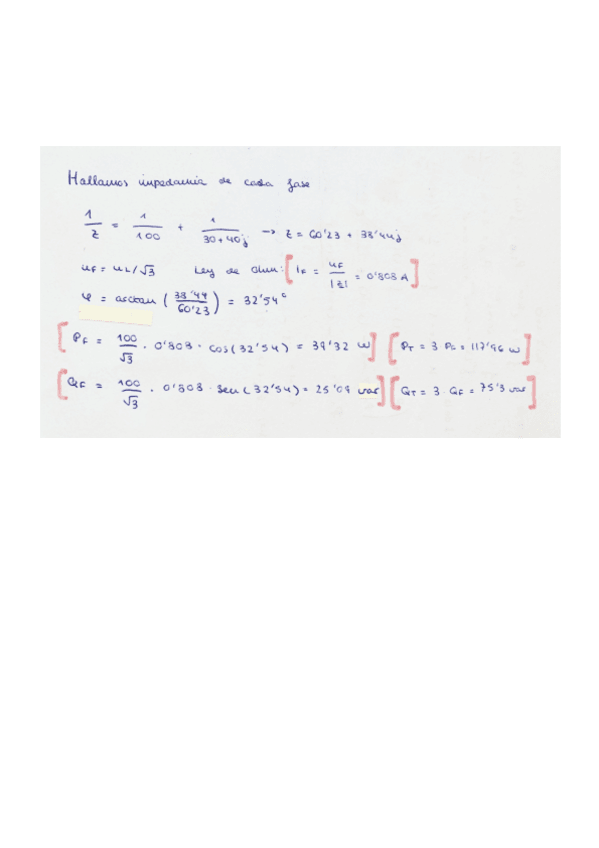 Hallamos impedancia de cada fase
1/z = 1/100 + 1/(30+40j) → z = 60'23 + 38'44j
uF = uL/√3 Ley de Ohm: [IF = uF/|z| = 0'808 A]
φ = arctan (38'44/60'23) = 32'54º
[PF = 100/√3 · 0'808 · cos(32'54) = 39'32 W] [PT = 3 PF = 117'96 W]
[QF = 100/√3 · 0'808 · sen(32'54) = 25'09 var] [QT = 3 · QF = 75'3 var]